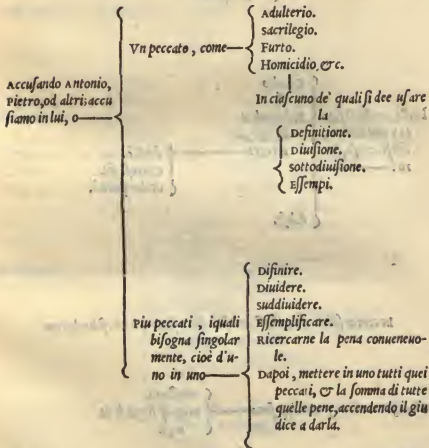 Accuſando Antonio,
Pietro, od altri; accu
ſiamo in lui, o
Vn peccato, come
Adulterio.
Sacrilegio.
Furto.
Homicidio, &c.
In ciaſcuno de' quali ſi dee uſare
la
Definitione.
Diuiſione.
Sottodiuiſione.
Eſſempi.
Piu peccati, iquali
biſogna ſingolar
mente, cioè d'u-
no in uno
Difinire.
Diuidere.
Suddiuidere.
Eſſemplificare.
Ricercarne la pena conueneuo-
le.
Dapoi, mettere in uno tutti quei
peccati, & la ſomma di tutte
quelle pene, accendendo il giu
dice a darla.